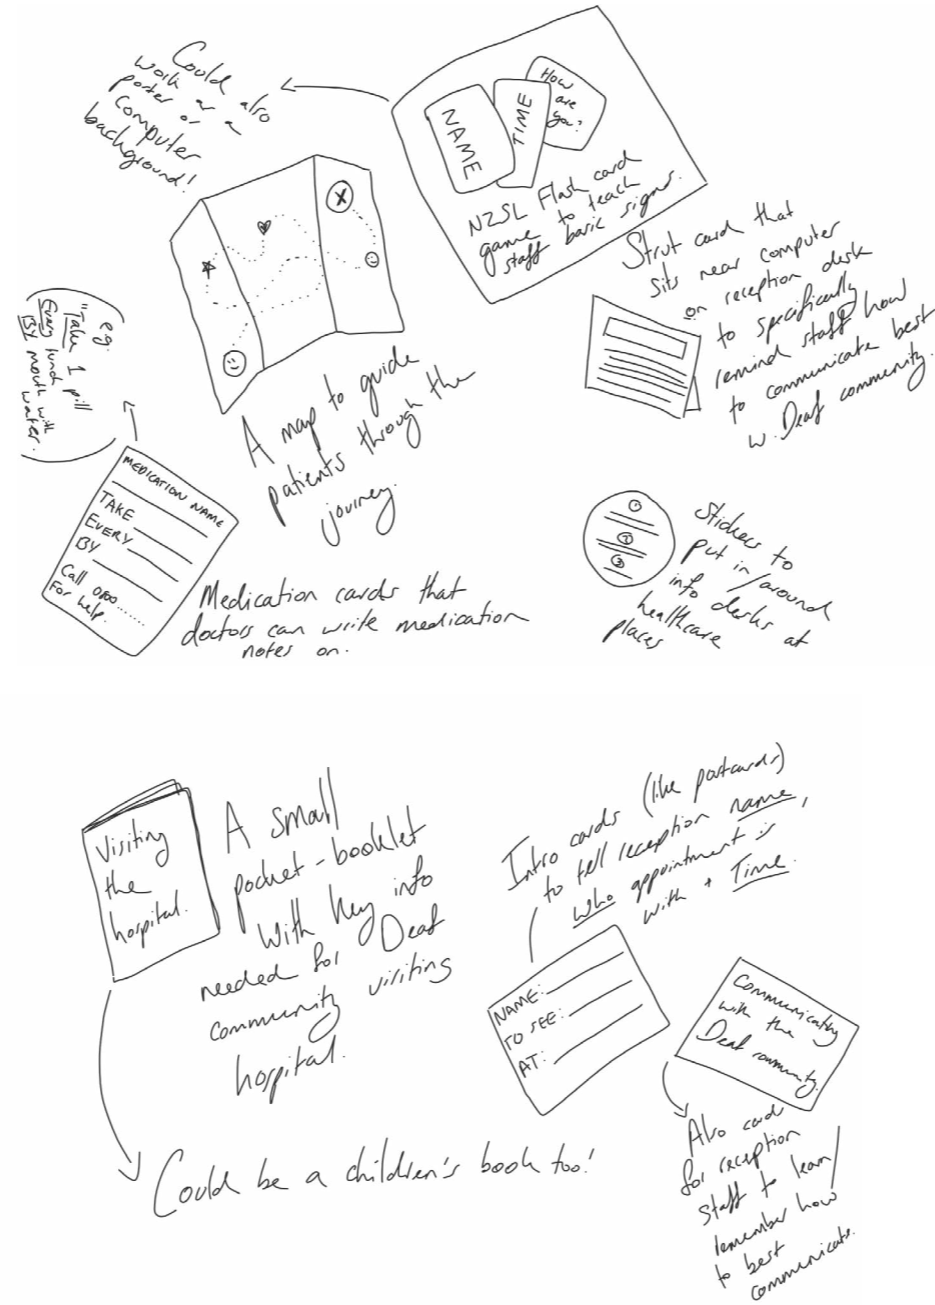 Could also
work as a
poster or
computer
background!
NAME
TIME
How
are
you?
NZSL Flash card
game to teach
staff basic signs.
Strut card that
sits near computer
on reception desk
to specifically
remind staff how
to communicate best
w. Deaf community.
A map to guide
patients through the
journey.
e.g.
"Take 1 pill
Every lunch
By mouth with
water.
MEDICATION NAME
TAKE
EVERY
BY
Call 0800......
For help.
Medication cards that
doctors can write medication
notes on.
1
2
3
Stickers to
put in/around
info desks at
healthcare
places
Visiting
the
hospital.
A small
pocket-booklet
with key info
needed for Deaf
community visiting
hospital.
Could be a children's book too!
Intro cards (like postcards)
to tell reception name,
who appointment is
with + Time.
NAME:
TO SEE:
AT:
Communicating
with the
Deaf community.
Also card
for reception
staff to learn/
remember how
to best
communicate.